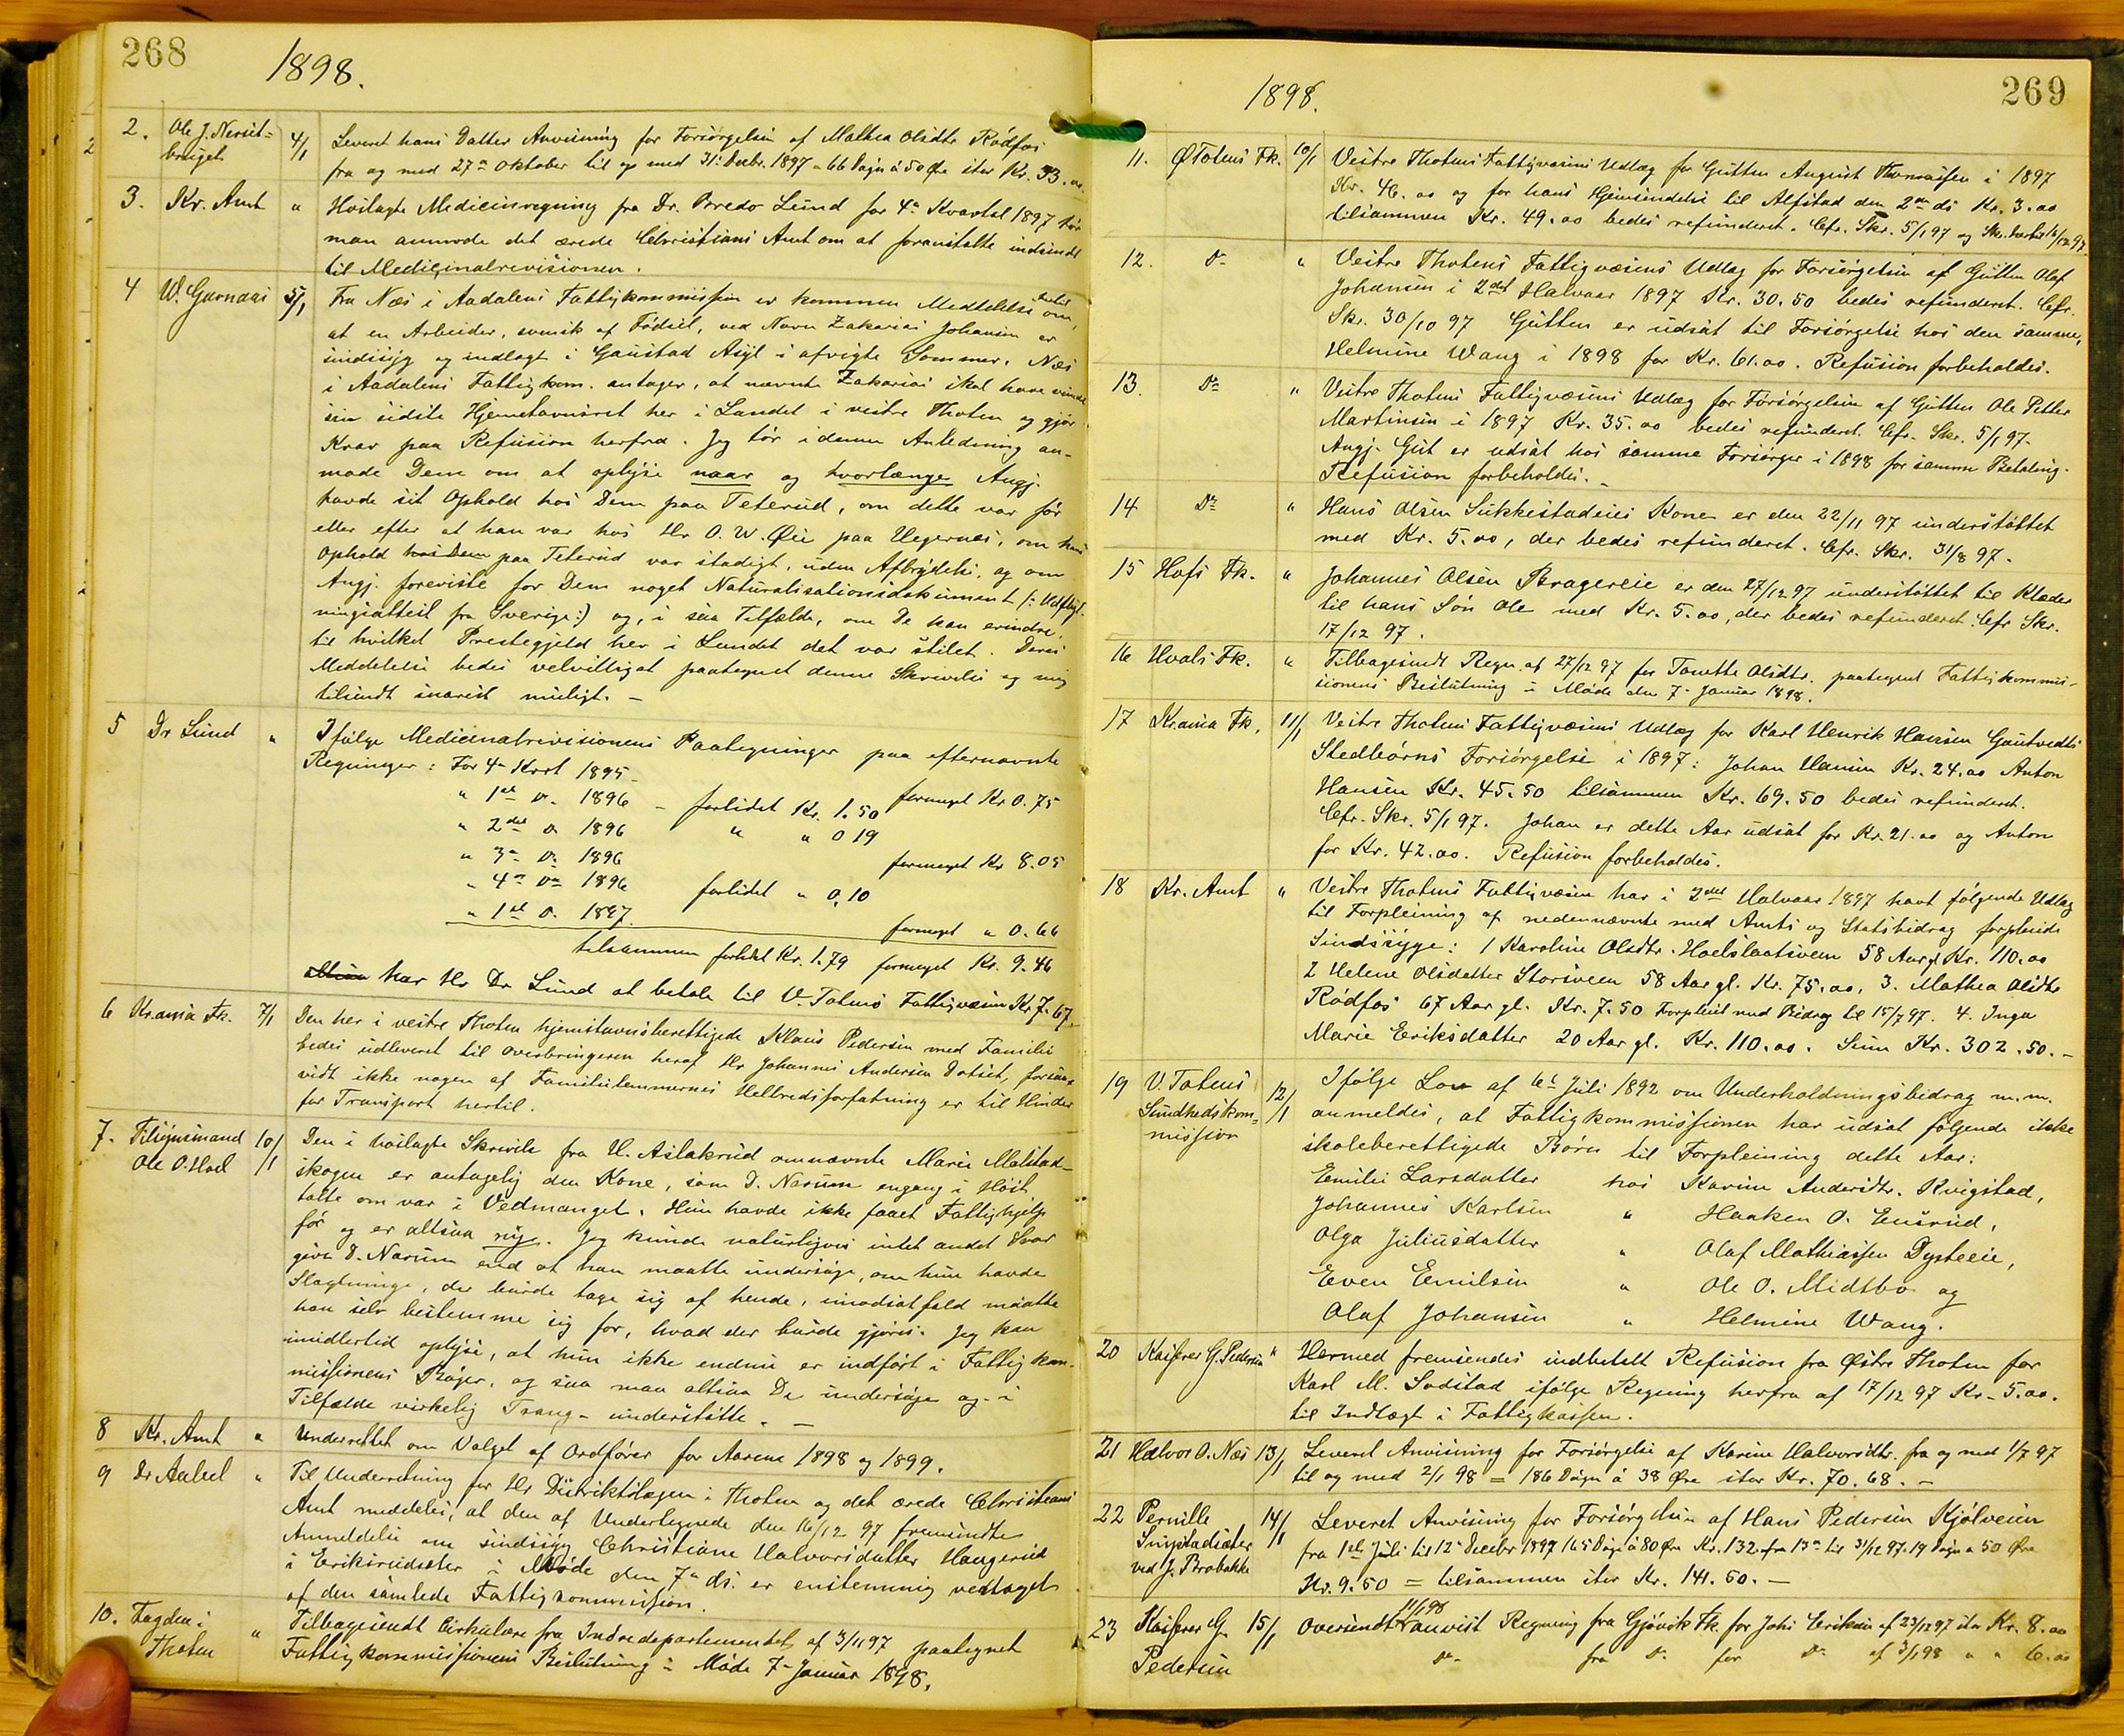 268
1898.
2. Ole J. Nersét- 4/1 Leveret hans Datter Anvisning for Forsørgelsen af Mathea Olsdtr Rødfos
bruget. fra og med 27de Oktober til og med 31: Decbr. 1897 = 66 Dage à 50 Øre stor Kr. 33.00
3. Kr. Amt " Hoslagte Medicinregning fra Dr. Bredo Lund for 4de Kvartal 1897 tør
man anmode det ærede Christians Amt om at foranstalte indsendt
til Medicinalrevisionen.
4 W. Garnaas 5/1 Fra Næs i Aadalens Fattigkommission er kommen Meddelelse hertil om,
at en Arbeider, svensk af Fødsel, ved Navn Zakarias Johansen er
sindssyg og indlagt i Gaustad Asyl i afvigte Sommer. Næs
i Aadalens Fattigkom. antager, at nævnte Zakarias skal have
sin sidste Hjemstavnsret her i Landet i vestre Thoten og gjør
Krav paa Refusion herfra. Jeg tør i denne Anledning an-
mode Dem om at oplyse naar og hvorlænge Angj.
havde sit Ophold hos Dem paa Teterud, om dette var før
eller efter at han var hos Hr O. W. Øie paa Hegernæs, om hans
Ophold hos Dem paa Teterud var stadigt, uden Afbrydelse, og om
Angj. foreviste for Dem noget Naturalisationsdokument (: Udflyt-
ningsattest fra Sverige :) og, i saa Tilfælde, om De kan erindre,
til hvilket Prestegjeld her i Landet det var stilet. Deres
Meddelelse bedes velvilligst paategnet denne Skrivelse og mig
tilsendt snarest muligt. –
5 Dr Lund " Ifølge Medicinalrevisionens Paategninger paa efternævnte
Regninger: For 4de Kvrt 1895 – formeget Kr 0.75
" 1ste do. 1896 – forlidet Kr. 1.50
" 2det do 1896 " " 0 19
" 3de do 1896 formeget Kr 8.05
" 4de do 1896 forlidet " 0.10
" 1ste do. 1897. formeget " 0.66
tilsammen forlidet Kr. 1.79 formeget Kr. 9.46
altsaa har Hr Dr Lund at betale til V. Totens Fattigvæsen Kr 7.67.
6 Kr.ania Fk. 7/1 Den her i vestre Thoten hjemstavnsberettigede Klaus Pedersen med Familie
bedes udleveret til Overbringeren heraf Hr Johannes Andersen Dotset, forsaa-
vidt ikke nogen af Familielemmernes Helbredsforfatning er til Hinder
for Transport hertil.
7. Tilsynsmand 10/1 Den i hoslagte Skrivelse fra H. Aslakrud omnævnte Marie Malstad-
Ole O. Hoel skogen er antagelig den Kone, som D. Narum engang i Høst
talte om var i Vedmangel. Hun havde ikke faaet Fattighjelp
før og er altsaa ny. Jeg kunde naturligvis intet andet Svar
give D. Narum end at han maatte undersøge, om hun havde
Slægtninge, der burde tage sig af hende, imodsatfald maatte
han selv bestemme sig for, hvad der burde gjøres. Jeg kan
imidlertid oplyse, at hun ikke endnu er indført i Fattigkom-
missionens Bøger, og saa maa altsaa De undersøge og i
Tilfælde virkelig Trang – understøtte. –
8 Kr. Amt " Underrettet om Valget af Ordfører for Aarene 1898 og 1899.
9 Dr Aabel " Til Underretning for Hr Distriktslægen i Thoten og det ærede Christians
Amt meddeles, at den af Undertegnede den 16/12 97 fremsendte
Anmeldelse om sindssyg Christiane Halvorsdatter Haugerud
i Eriksrudseter i Møde den 7de ds. er enstemmig vedtaget
af den samlede Fattigkommission.
10. Fogden i " Tilbagesendt Cirkulære fra Indredepartementet af 3/11 97 paategnet
Thoten Fattigkommissionens Beslutning i Møde 7de Januar 1898.
269
1898.
11. ØTotens Fk. 10/1 Vestre Thotens Fattigvæsens Udlæg for Gutten August Thomassen i 1897
Kr. 46.00 og for hans Hjemsendelse til Alfstad den 2den ds Kr. 3.00
tilsammen Kr. 49.00 bedes refunderet. Cfr. Skr. 5/1 97 og Skr. hertil 16/12 97
12. do " Vestre Thotens Fattigvæsens Udlæg for Forsørgelsen af Gutten Olaf
Johansen i 2det Halvaar 1897 Kr. 30.50 bedes refunderet. Cfr.
Skr. 30/10 97 Gutten er udsat til Forsørgelse hos den samme,
Helmine Wang i 1898 for Kr. 61.00. Refusion forbeholdes.
13. do " Vestre Thotens Fattigvæsens Udlæg for Forsørgelsen af Gutten Ole Petter
Martinsen i 1897 Kr. 35.00 bedes refunderet. Cfr. Skr. 5/1 97.
Angj. Gut er udsat hos samme Forsørger i 1898 for samme Betaling.
Refusion forbeholdes. –
14 do " Hans Olsen Sukkestadeies Kone er den 22/11 97 understøttet
med Kr. 5.00, der bedes refunderet. Cfr. Skr. 31/8 97.
15 Hofs Fk. " Johannes Olsen Bragereie er den 27/12 97 understøttet til Klæder
til hans Søn Ole med Kr. 5.00, der bedes refunderet. Cfr Skr.
17/12 97.
16 Hvals Fk. " Tilbagesendt Regn. af 27/12 97 for Tonette Olsdtr. paategnet Fattigkommis-
sionens Beslutning i Møde den 7de Januar 1898.
17 Kr.ania Fk. 11/1 Vestre Thotens Fattigvæsens Udlæg for Karl Henrik Hansen Gautvedts
Stedbørns Forsørgelse i 1897: Johan Hansen Kr. 24.00 Anton
Hansen Kr. 45.50 tilsammen Kr. 69.50 bedes refunderet.
Cfr. Skr. 5/1 97. Johan er dette Aar udsat for Kr. 21.00 og Anton
for Kr. 42.00. Refusion forbeholdes.
18 Kr. Amt " Vestre Thotens Fattigvæsen har i 2det Halvaar 1897 havt følgende Udlæg
til Forpleining af nedennævnte med Amts og Statsbidrag forpleiede
Sindssyge: 1 Karoline Olsdtr. Hoelslaatsveen 58 Aar gl. Kr. 110.00
2 Helene Olsdatter Storsveen 58 Aar gl. Kr. 75.00, 3. Mathea Olsdtr
Rødfos 67 Aar gl. Kr. 7.50 Forpleiet med Bidrag til 15/7 97. 4. Inga
Marie Eriksdatter 20 Aar gl. Kr. 110.00. Sum Kr. 302.50. –
19 V. Totens 12/1 Ifølge Lov af 6te Juli 1892 om Underholdningsbidrag m.m.
Sundhedskom- anmeldes, at Fattigkommissionen har udsat følgende ikke
mission skoleberettigede Børn til Forpleining dette Aar:
Emilie Larsdatter hos Karine Andersdtr. Kvigstad,
Johannes Karlsen " Haaken O. Ensrud,
Olga Juliusdatter " Olaf Mathiassen Dysteeie,
Even Emilsen " Ole O. Midtbø og
Olaf Johansen " Helmine Wang.
20 Kasserer G. Pedersen " Hermed fremsendes indbetalt Refusion fra Østre Thoten for
Karl M. Sodstad ifølge Regning herfra af 17/12 97 Kr. 5.00.
til Indlægt i Fattigkassen.
21 Halvor O. Næs 13/1 Leveret Anvisning for Forsørgelse af Karine Halvorsdtr. fra og med 1/7 97
til og med 2/1 98 = 186 Døgn à 38 Øre stor Kr. 70.68. –
22 Pernille 14/1 Leveret Anvisning for Forsørgelsen af Hans Pedersen Kjølveien
fra 1ste Juli til 12te Decebr 1897 165 Døgn à 80 Øre Kr. 132. fra 13de til 31/12 97. 19 Døgn a 50 Øre
ved J. Brobakke Kr. 9.50 = tilsammen stor Kr. 141.50. –
23 Kasserer G. 15/1 Oversendt 11/1 98 anvist Regning fra Gjøvik Fk. for Johs Eriksen af 23/12 97 stor Kr. 8.00
Pedersen do fra do for do af 3/1 98 " " 6.00